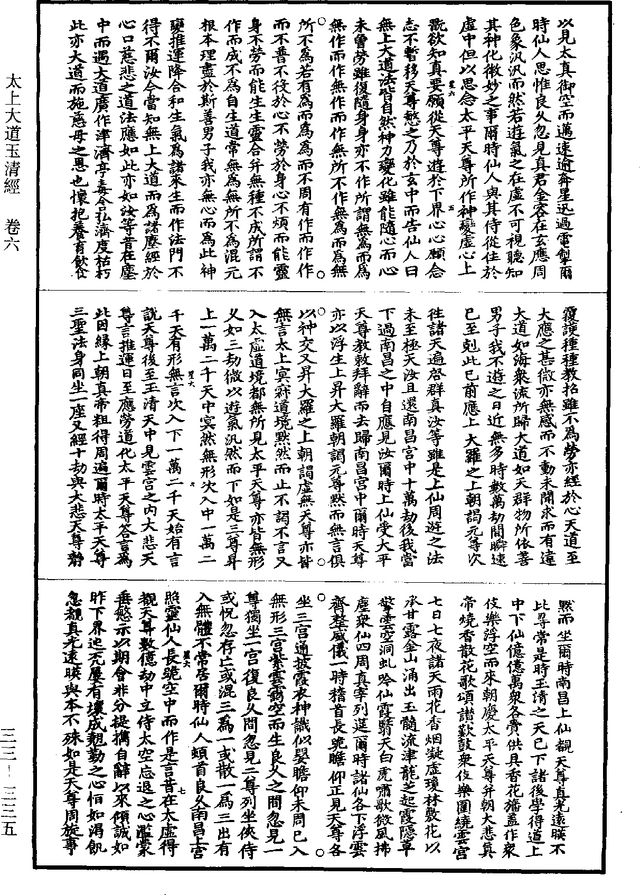 以見太真御空而邁速逾奔星迅過電掣爾
時仙人思惟良久忽見真君金容在玄應周
色象汎汎而然若遊氣之在虛不可視聽知
其神化微妙之事爾時仙人與其侍從住於
虛中但以思念太平天尊所作神變虛心上
翫欲知真要願從天尊遊於下界心心願念
志不暫移天尊愍之乃於玄中而告仙人曰
無上大道法皆自然神力變化雖能隨心而心
未曾勞雖復隨身身亦不作所謂無為而為
無作而作無作而作無所不作無為而為無
所不為若有為而為為而不周有作而作作
而不普不役於心不勞於身心不煩而能靈
身不勞而能生生靈合并無種不成所謂不
作而成不為自生道常無為無所不為混元
根本理盡於斯善男子我亦無心而為此神
變推運降合和生氣為諸眾生而作法門不
得不爾汝今當知無上大道而為諸塵經於
心口慈悲之道法應如此亦如汝等昔在塵
中而遇大道廣作津濟亭毒令乳濟度枯朽
此亦大道而施慈母之恩也懷抱養育飲食
覆護種種教招雖不為勞亦經於心天道至
大應之甚微亦無感而不動未開求而有違
大道如海眾流所歸大道如天群物所依善
男子我不遊之日近無多時數萬劫間瞬速
已至剋此已前應上大羅之上朝謁元尊次
往諸天遍啓群真汝等雖是上仙周遊之法
未至極天汝且還南昌宮中十萬劫後我當
下過南昌之中自應見汝爾時上仙受太平
天尊教敕拜辭而去歸南昌宮中爾時天尊
亦以浮生上昇大羅朝謁元尊默而無言俱
以神交又昇大羅之上朝謁虛無天尊亦皆
無言太上寂寂道境默然而止不謁不言又
入太虛道境都無所見太平天尊亦皆無形
又如三劫微以遊氣汎然而下如是三尊昇
上一萬二千天中冥然無形次入中一萬二
千天有形無言次入下一萬二千天始有言
說天尊後至玉清天中見雲宮之內大悲天
尊言推運日至應勞道化太平天尊答言為
此因緣上朝真帝粗得周遍爾時太平天尊
三聖法身同坐一座又經十劫與大悲天尊對
默而坐爾時南昌上仙覩天尊真光遠暎不
比尋常是時玉清之天已下諸後學得道上
中下仙億億萬眾各賫供具香花旛蓋作眾
伎樂浮空而來朝慶太平天尊并朝大悲真
帝燒香散花歌頌讚歎鼓眾伎樂圍繞雲宮
七日七夜諸天雨花香烟凝虛瓊林敷花以
承甘露金山涌出玉髓流津龍芝起霞隱草
驚雲空洞虬吟仙霄翳天白虎嘯歌微風拂
塵眾仙四周真宰列筵爾時諸仙各下浮雲
齊整威儀一時稽首長跪瞻仰正見天尊各
坐三宮通披霞衣神識似嬰瞻仰未周已入
無形三宮紫雲翳空而生良久之間忽見一
尊獨坐一宮復良久間忽見二尊列坐俠侍
或怳忽存亡或混三為一或散一為三出有
入無體不常居爾時仙人頓首良久南昌上宮
照靈仙人長跪空中而作是言昔在太虛得
覩天尊數億劫中立侍太空忘退之心濫蒙
垂慜示以期會非分提攜自辭以來傾誠如
昨下界迆兆屢有壞成翹勤之心恒如渴飢
忽覩真光遠暎與本不殊如是天尊周旋事
太上大道玉清經　卷六
三三—三三五